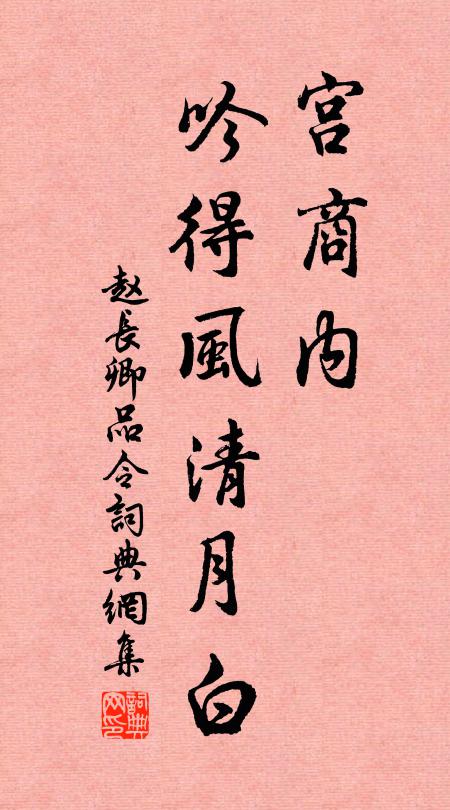 宫商内
吟得風清月白
赵長卿品令詞典網集
詞典网印